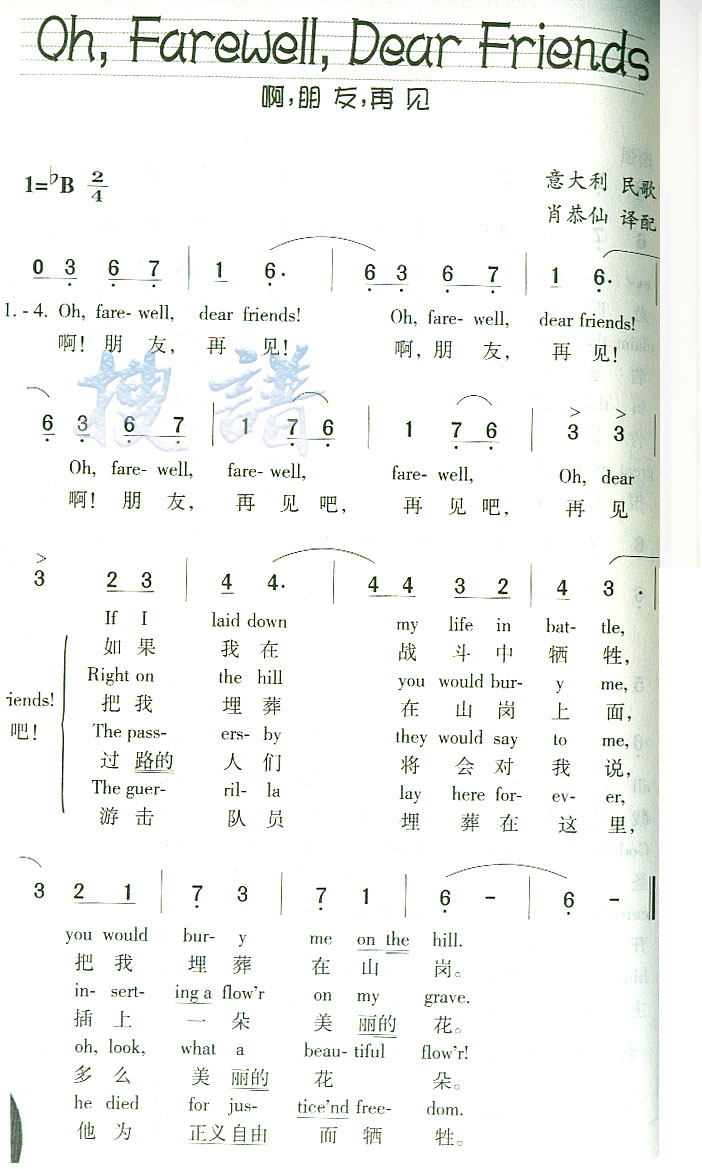 Oh, Farewell, Dear Friends
啊,朋友,再见
1=♭B 2/4
意大利 民歌
肖恭仙 译配
0 3 6 7 | 1 6· | 6 3 6 7 | 1 6· |
1.-4. Oh, fare- well, dear friends! Oh, fare- well, dear friends!
啊! 朋 友, 再 见! 啊, 朋 友, 再 见!
搜谱
6 3 6 7 | 1 7 6 | 1 7 6 | 3 3
Oh, fare- well, fare- well, fare- well, Oh, dear
啊! 朋 友, 再 见 吧, 再 见 吧, 再 见
3 2 3 | 4 4· | 4 4 3 2 | 4 3 · |
If I laid down my life in bat- tle,
如 果 我 在 战 斗 中 牺 牲,
Right on the hill you would bur- y me,
iends!
把 我 埋 葬 在 山 岗 上 面,
吧!
The pass- ers- by they would say to me,
过 路的 人 们 将 会 对 我 说,
The guer- ril- la lay here for- ev- er,
游 击 队 员 埋 葬 在 这 里,
3 2 1 | 7 3 | 7 1 | 6 - | 6 - ‖
you would bur- y me on the hill.
把 我 埋 葬 在 山 岗。
in- sert- ing a flow'r on my grave.
插 上 一 朵 美 丽的 花。
oh, look, what a beau- tiful flow'r!
多 么 美 丽的 花 朵。
he died for jus- tice'nd free- dom.
他 为 正义 自由 而 牺 牲。